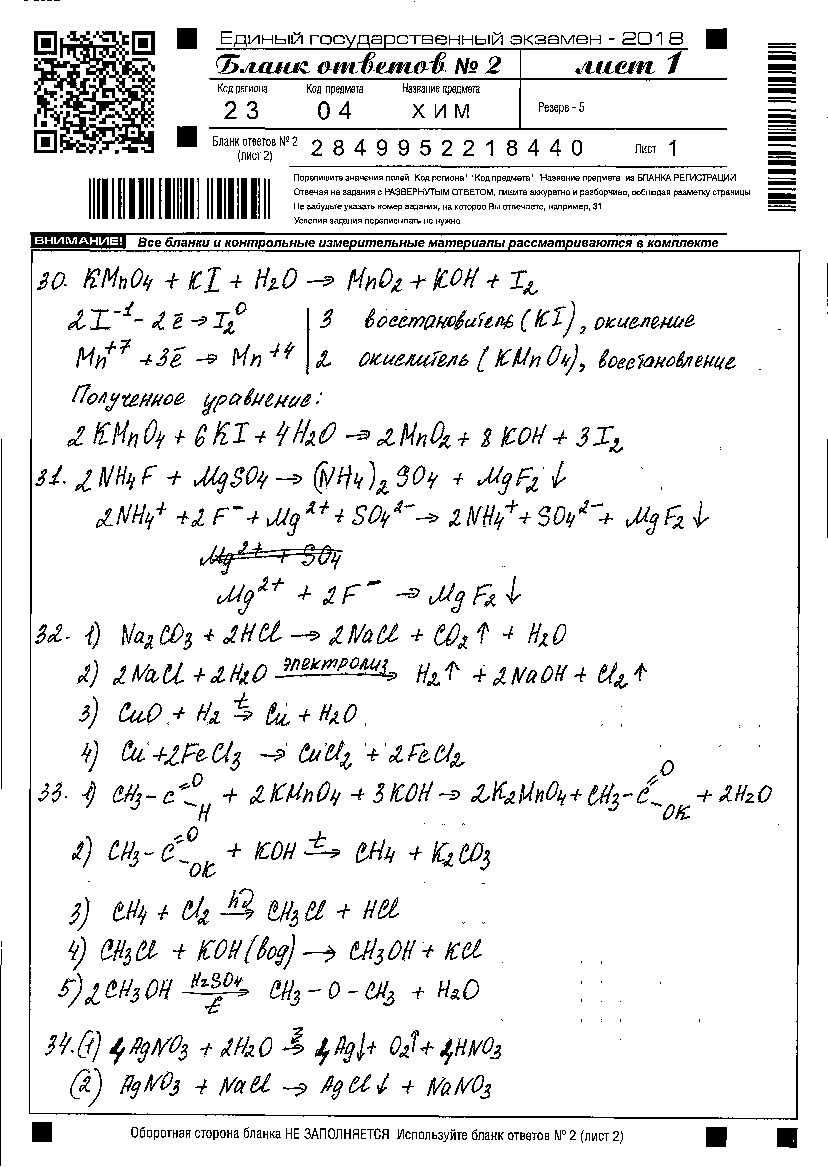 Единый государственный экзамен - 2018
Бланк ответов № 2 лист 1
Код региона Код предмета Название предмета
23 04 ХИМ Резерв - 5
Бланк ответов № 2 (лист 2) 2849952218440 Лист 1
Перепишите значения полей "Код региона" "Код предмета" "Название предмета" из БЛАНКА РЕГИСТРАЦИИ
Отвечая на задания с РАЗВЕРНУТЫМ ОТВЕТОМ, пишите аккуратно и разборчиво, соблюдая разметку страницы
Не забудьте указать номер задания, на которое Вы отвечаете, например, 31
Условия задания переписывать не нужно
ВНИМАНИЕ! Все бланки и контрольные измерительные материалы рассматриваются в комплекте
30. KMnO4 + KI + H2O → MnO2 + KOH + I2
2I⁻¹ - 2ē → I2⁰ | 3 восстановитель (KI), окисление
Mn⁺⁷ + 3ē → Mn⁺⁴ | 2 окислитель (KMnO4), восстановление
Полученное уравнение:
2KMnO4 + 6KI + 4H2O → 2MnO2 + 8KOH + 3I2
31. 2NH4F + MgSO4 → (NH4)2SO4 + MgF2↓
2NH4⁺ + 2F⁻ + Mg²⁺ + SO4²⁻ → 2NH4⁺ + SO4²⁻ + MgF2↓
Mg²⁺ + SO4
Mg²⁺ + 2F⁻ → MgF2↓
32. 1) Na2CO3 + 2HCl → 2NaCl + CO2↑ + H2O
2) 2NaCl + 2H2O электролиз→ H2↑ + 2NaOH + Cl2↑
3) CuO + H2 t→ Cu + H2O
4) Cu + 2FeCl3 → CuCl2 + 2FeCl2
33. 1) CH3-C=O-H + 2KMnO4 + 3KOH → 2K2MnO4 + CH3-C=O-OK + 2H2O
2) CH3-C=O-OK + KOH t→ CH4 + K2CO3
3) CH4 + Cl2 hν→ CH3Cl + HCl
4) CH3Cl + KOH(вод) → CH3OH + KCl
5) 2CH3OH H2SO4 t→ CH3-O-CH3 + H2O
34. (1) 4AgNO3 + 2H2O э→ 4Ag↓ + O2↑ + 4HNO3
(2) AgNO3 + NaCl → AgCl↓ + NaNO3
Оборотная сторона бланка НЕ ЗАПОЛНЯЕТСЯ Используйте бланк ответов № 2 (лист 2)